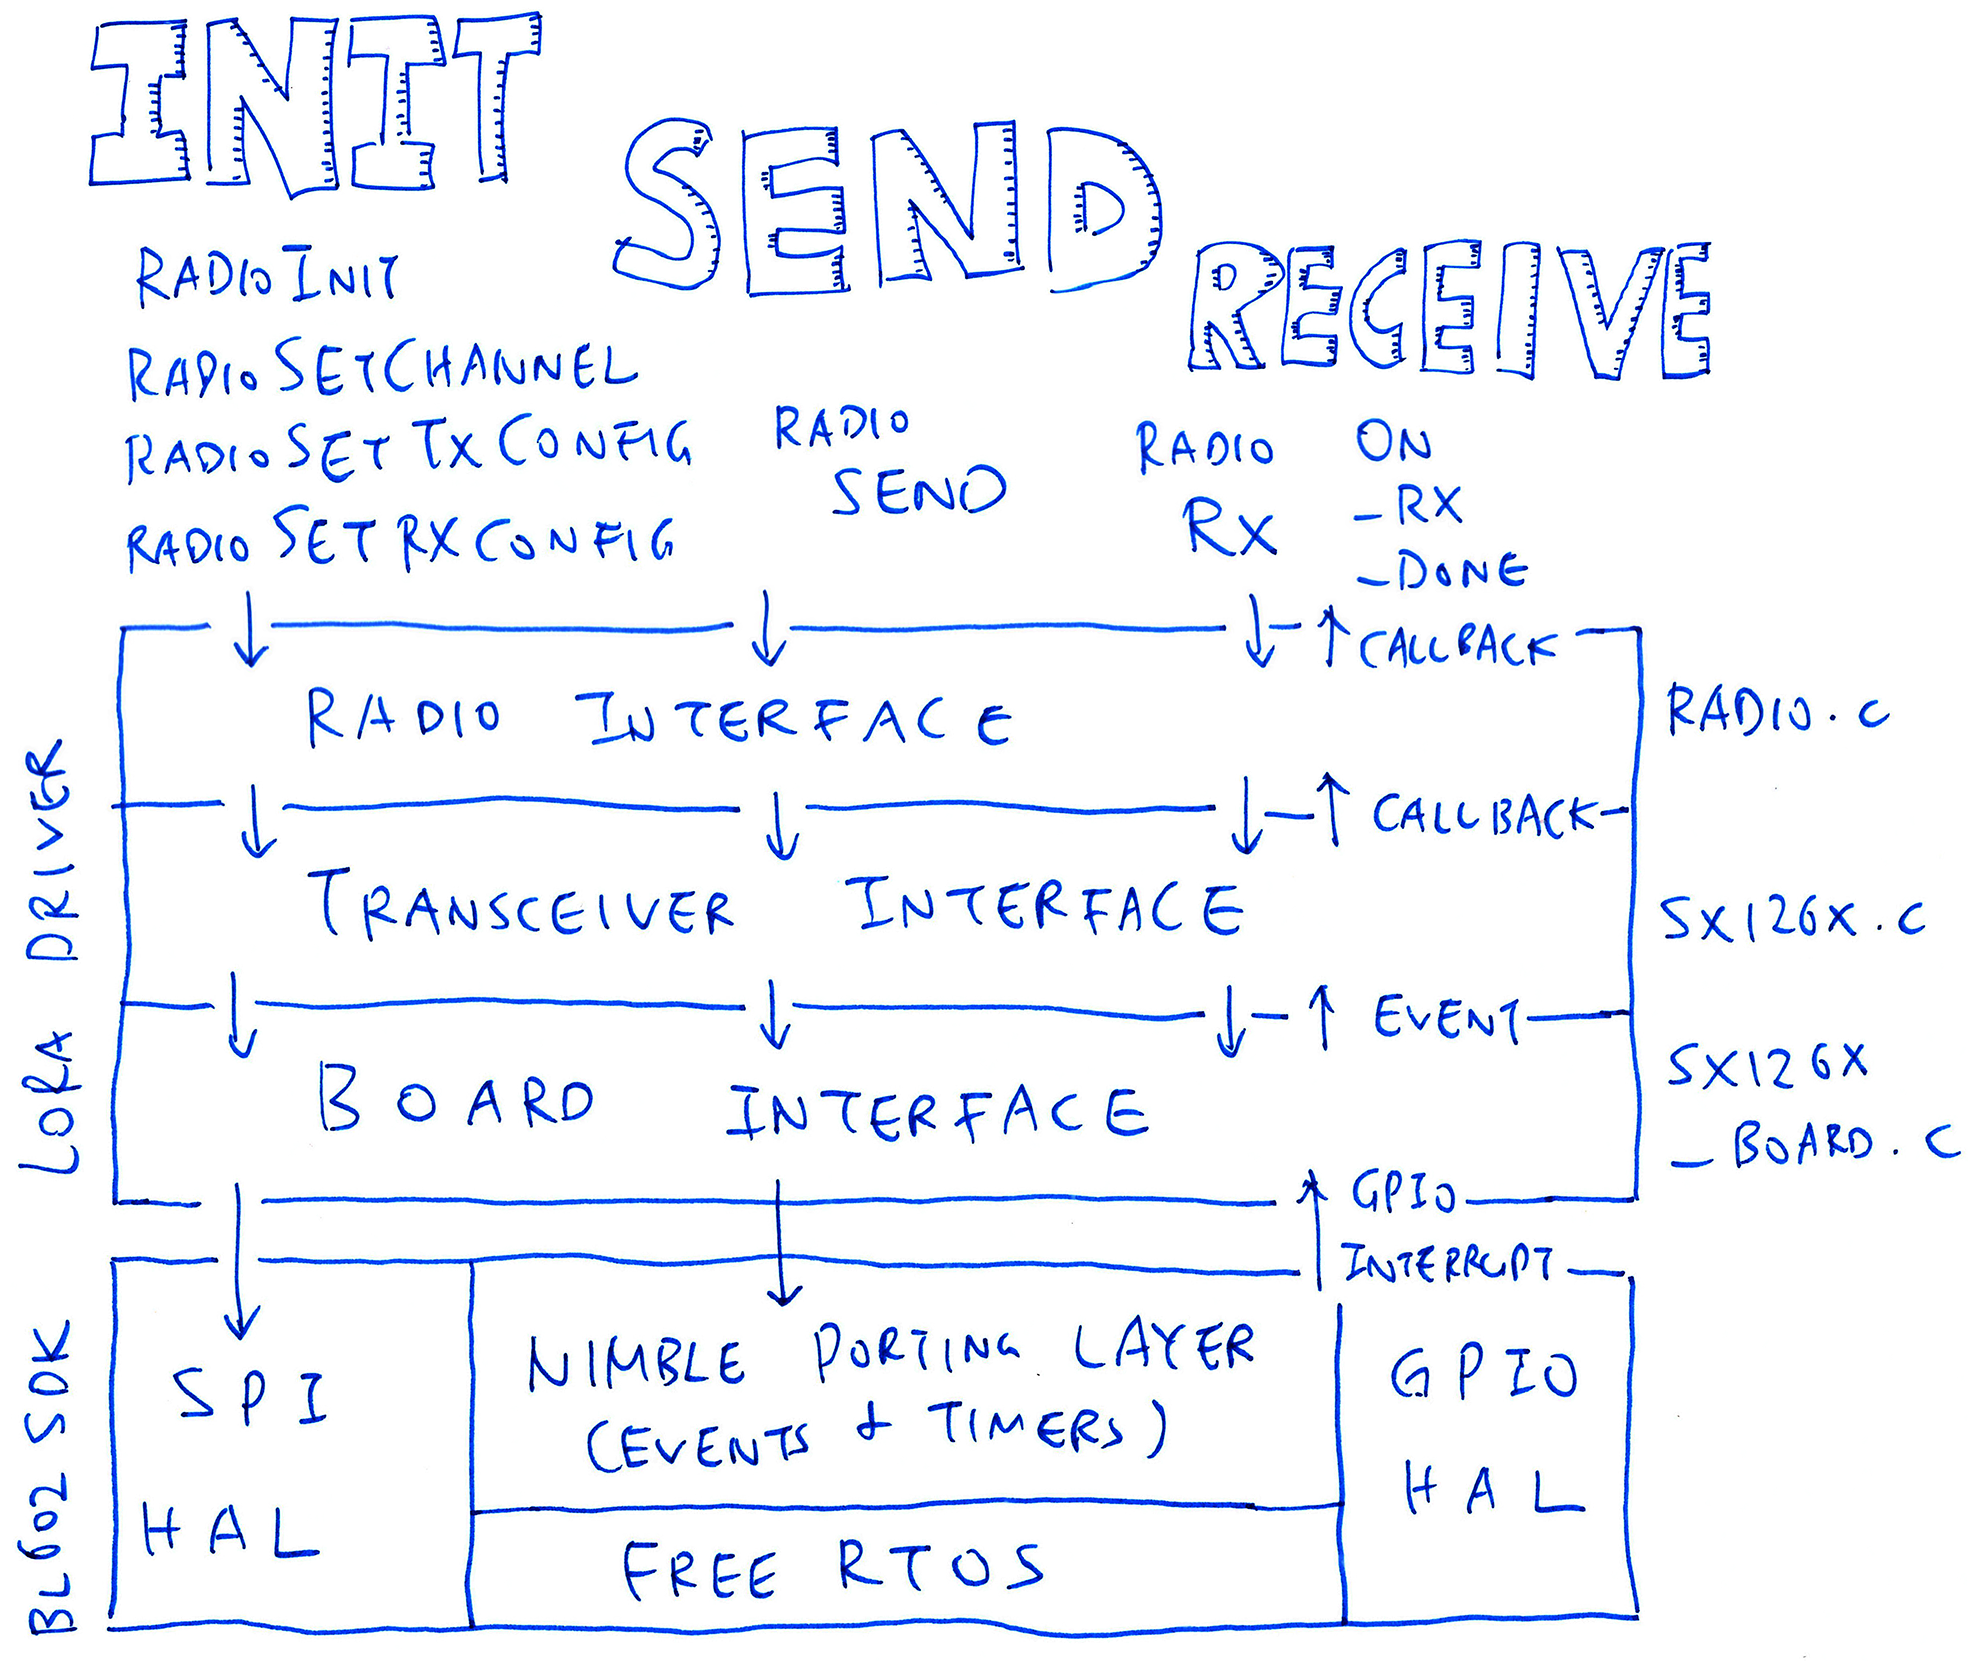 INIT
SEND
RECEIVE
RADIO INIT
RADIO SETCHANNEL
RADIO SET TX CONFIG
RADIO SET RX CONFIG
RADIO
SEND
RADIO
RX
ON
_RX
_DONE
CALLBACK
RADIO INTERFACE
RADIO.C
CALLBACK
TRANSCEIVER INTERFACE
SX126X.C
EVENT
BOARD INTERFACE
SX126X
_BOARD.C
GPIO
INTERRUPT
LORA DRIVER
SPI
HAL
NIMBLE PORTING LAYER
(EVENTS & TIMERS)
FREE RTOS
GPIO
HAL
BL602 SDK